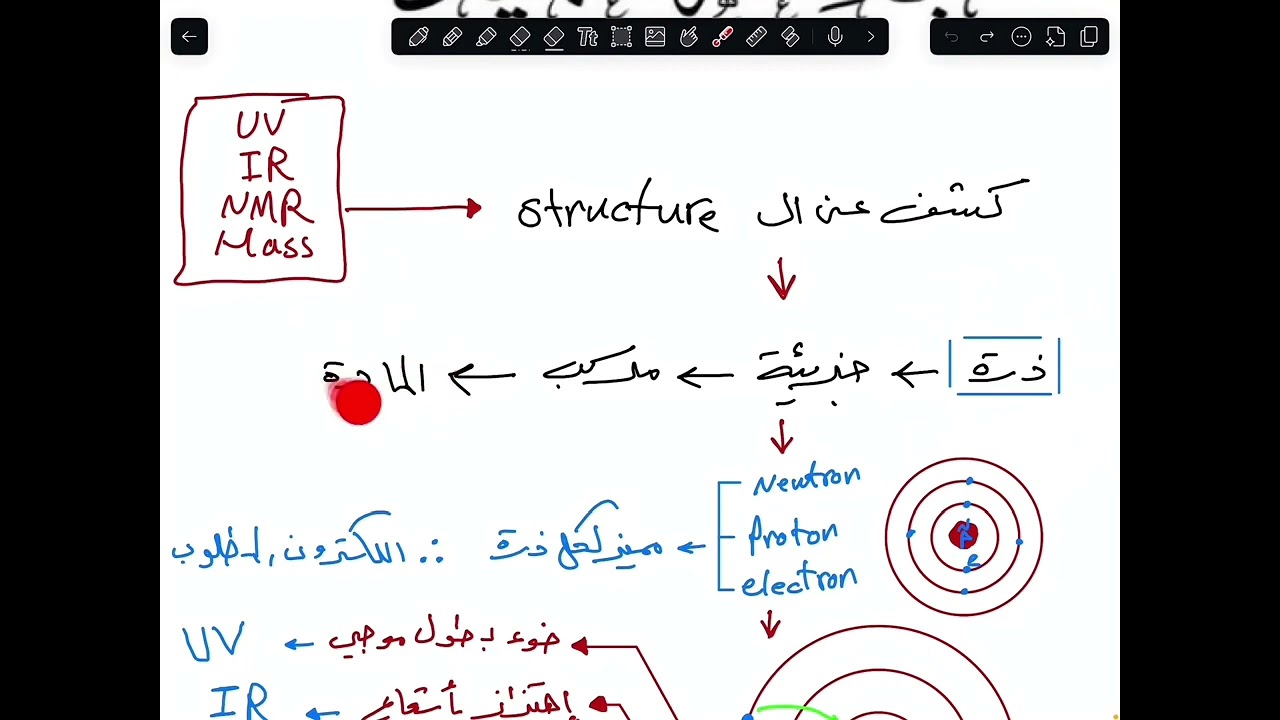 Tt
UV
IR
NMR
Mass
كشف عن ال structure
ذرة ← جزيئة ← مركب ← المادة
Neutron
Proton
electron
مميز لكل ذرة ∴ الالكترون المطلوب
P
e
ضوء بطول موجي ← UV
إهتزاز بأشعاع ← IR